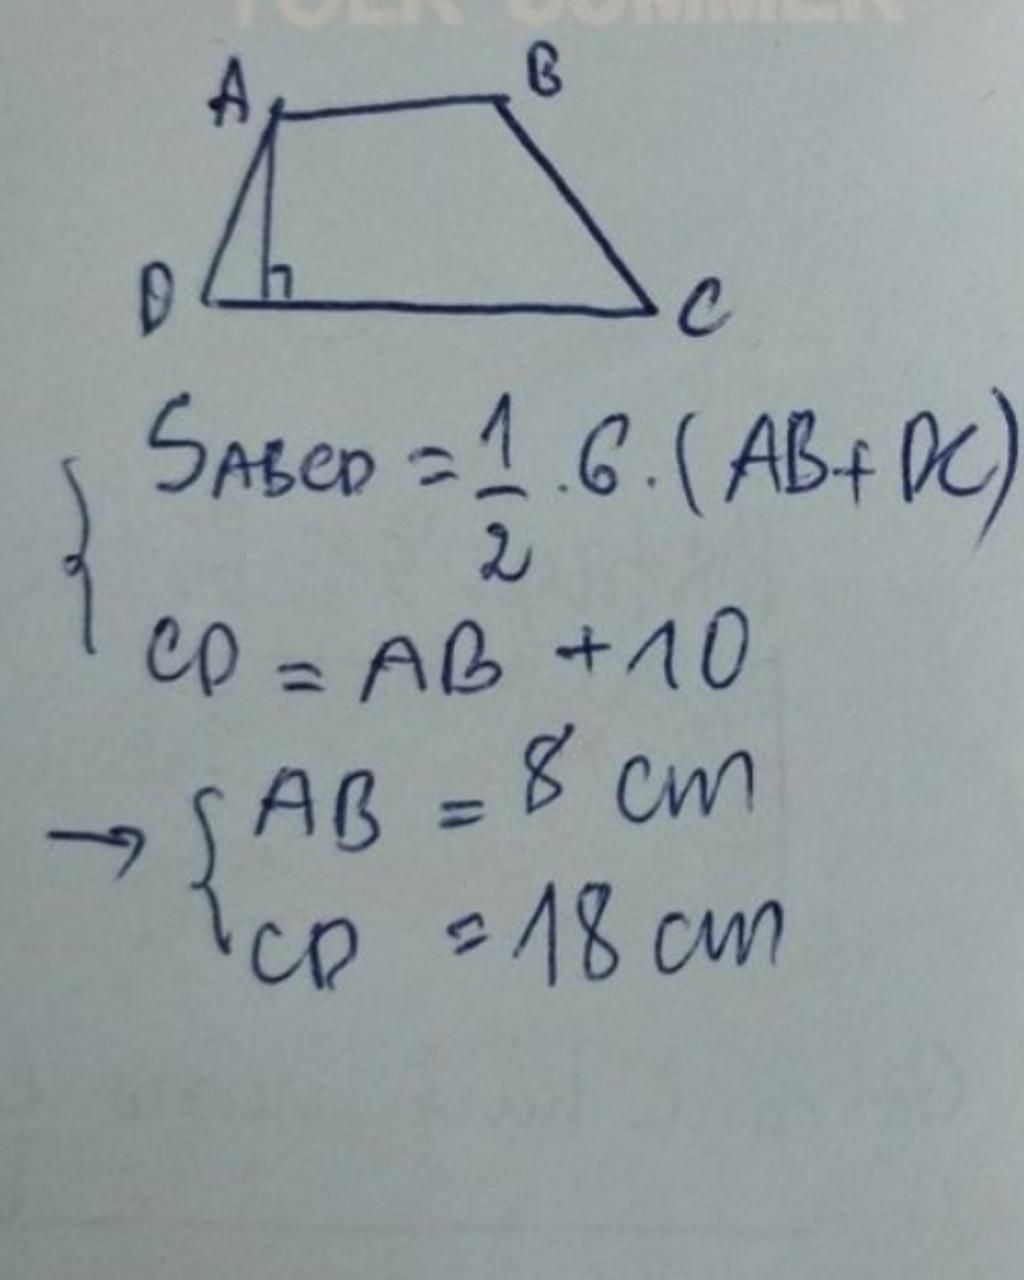 A B
D C
S_ABCD = 1/2 . 6 . ( AB + DC )
CD = AB + 10
→ { AB = 8 cm
CD = 18 cm